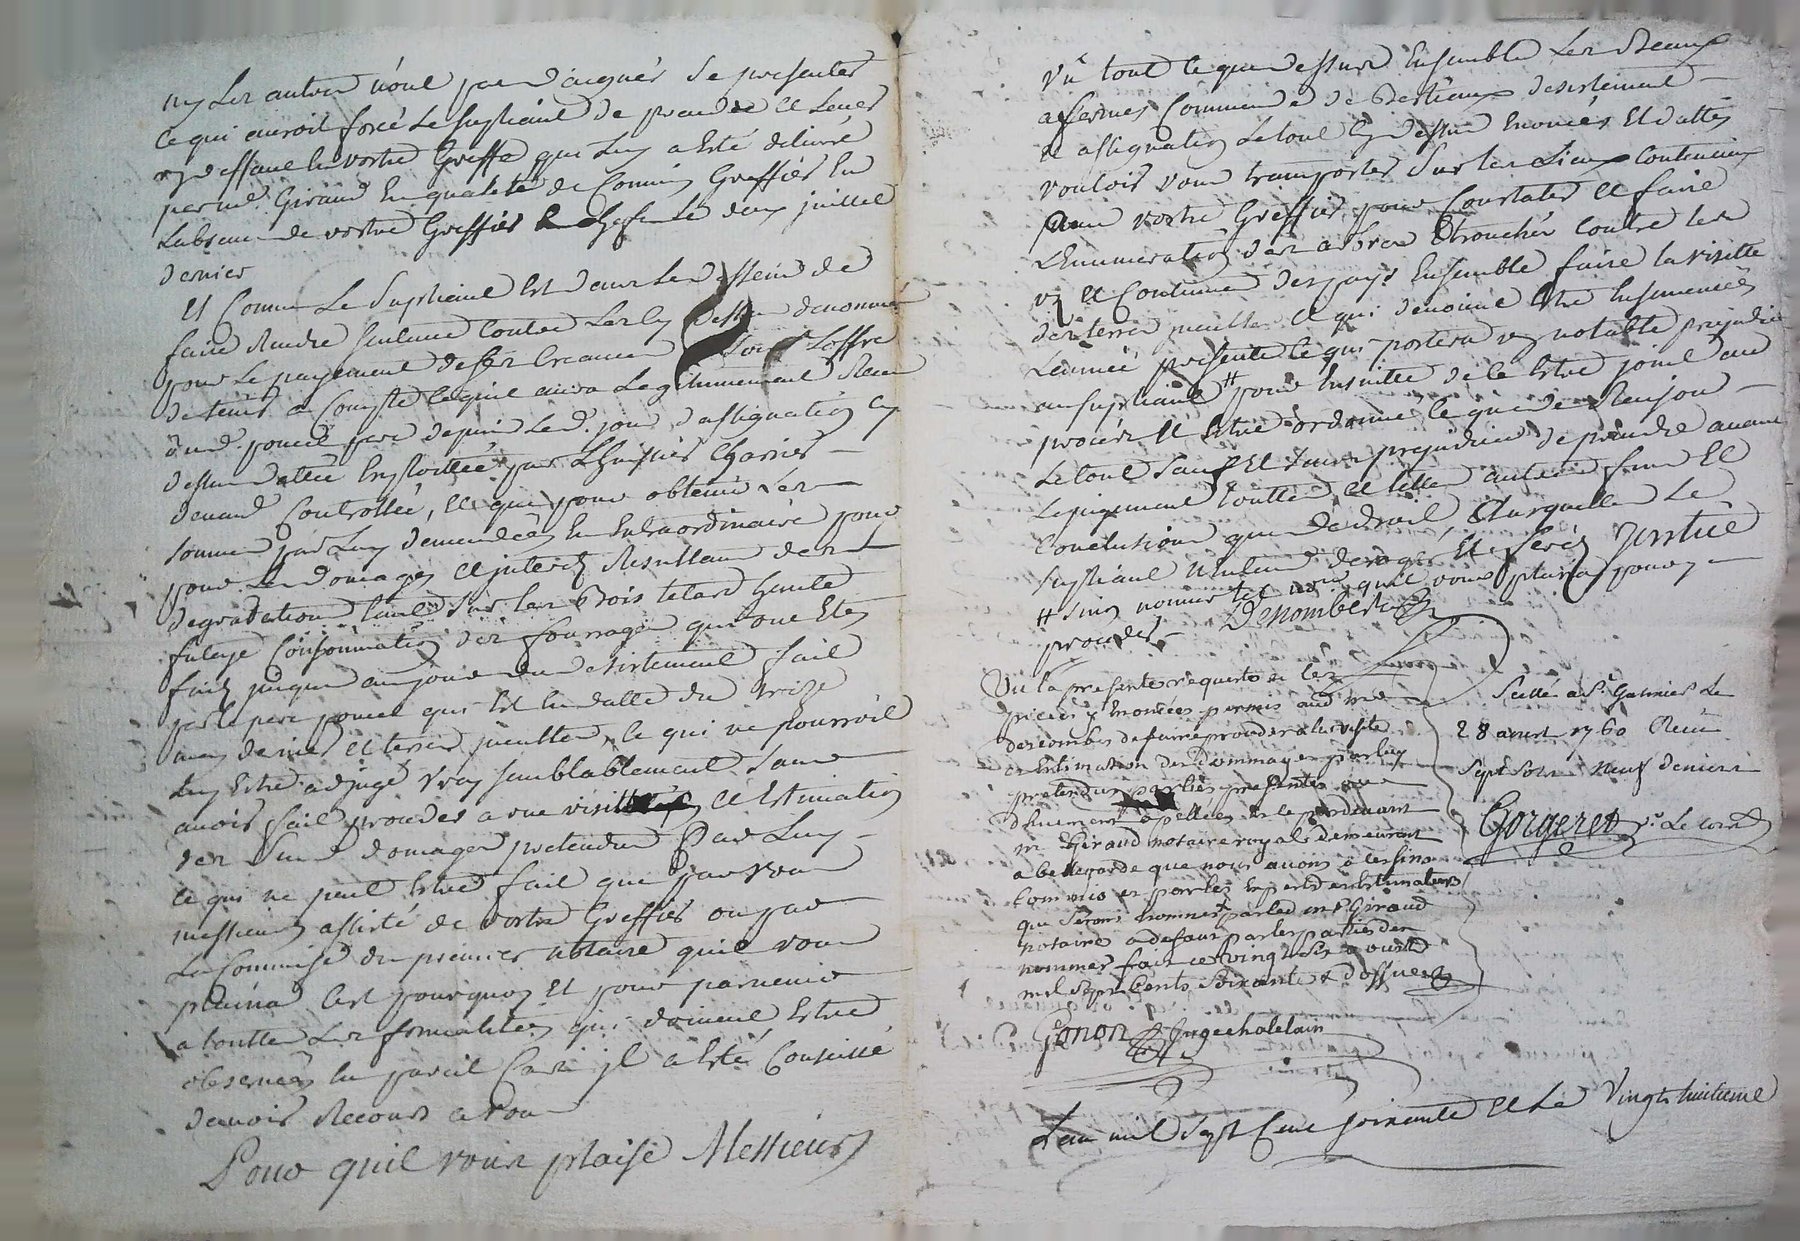 ny les autres n'ont pas daignés se presenter
ce qui auroit forcé le supliant de prandre et lever
un deffaut en vostre Greffe qui luy a esté délivré
par me. Giraud en qualité de Commis Greffier en
labsence de vostre Greffier en chef le deux juillet
dernier
Et Comme le Supliant est dans le dessein de
faire Rendre sentence Contre les cy dessus denommés
pour le payement de ses Creances sous Loffre
de tenir a Compte ce qu'il aura Legitimement Receu
dud. poncet pere depuis led. jour d'assignation cy
dessus datée Exploittée par Lhuissier Charrier
devand Controllée, et que pour obtenir les
sommes par Luy demandées en Extraordinaire pour
pour les domages et interets Resultans des
degradations tant sur les Bois tetard haute
futaye Consommation des fourrages qui ont Etés
faits jusques au jour du desistement fait
par le pere poncet qui est en datte du treize
may dernier et terres incultes, ce qui ne pourroit
luy Estre adjugé vray semblablement sans
avoir fait proceder a une visitte et Estimation
des susd. domages pretendus Par Luy
ce qui ne peut Estre fait que par vous
messieurs assisté de vostre Greffier ou par
La Commise du premier notaire quil vous
plaira Cest pourquoy Et pour parvenir
a toutte les formalités qui doivent Estre
observées en pareil Cas il a Esté Conseillé
davoir Recours a vous
Pour quil vous plaise Messieurs
Vû tout ce que dessus Ensemble les Beaux
a fermes Commande de Bestiaux desistement
et assignation le tout cy dessus Enoncés Et dattés
vouloir vous transporter sur les Lieux Contentieux
avec vostre Greffier pour Constater et faire
L'Enumeration des arbres Etronchés contre les
us et Coutumes des pays Ensemble faire la visitte
des terres incultes et qui devoient Estre Ensemencées
Lannée presente ce qui portera un notable prejudice
au supliant # pour Ensuitte de ce Estre joint au
procés et Estre ordonné ce que de Raison
Le tout sauf Et sans prejudice de prendre avant
Le jugement toutte et telles autres fins Et
Conclusions que de droit, Ausquelles Le
supliant n'entend deroger Et Ferés Justice
# sinon nommer tel nore. quil vous plaira pour y
proceder
Denombert
Vu la presente requeste et les
pieces y Enoncées permis aud. me
descombes de faire proceder a la visite
et Estimation des dommages par luy
pretendus parties presentes ou
duement apellées et le pardevant
me Giraud notaire royal demeurant
a bellegarde que nous avons a ces fins
commis et par les Experts et Estimateurs
que seront nommés par led. me Giraud
notaire a defaut par les parties den
nommer fait ce vingt six aoust
mil sept cents soixante & dessuers
Gonon Juge chatelain
Scellé a St. Galmier Le
28 aoust 1760 Receu
Sept sols neuf deniers
Gorgeret
Lan mil sept Cent soixante et le vingt huitieme